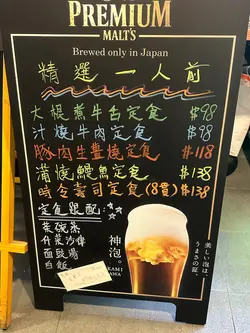 PREMIUM
MALT'S
Brewed only in Japan
精選一人前
大根煮牛舌定食 $98
汁燒牛肉定食 $98
豚肉生薑燒定食 $118
蒲燒鰻魚定食 $138
時令壽司定食(8貫) $138
定食跟配:
茶碗蒸
什菜沙律
麵豉湯
白飯
神泡。
KAMI
AWA
美しい泡は、
うまさの証。